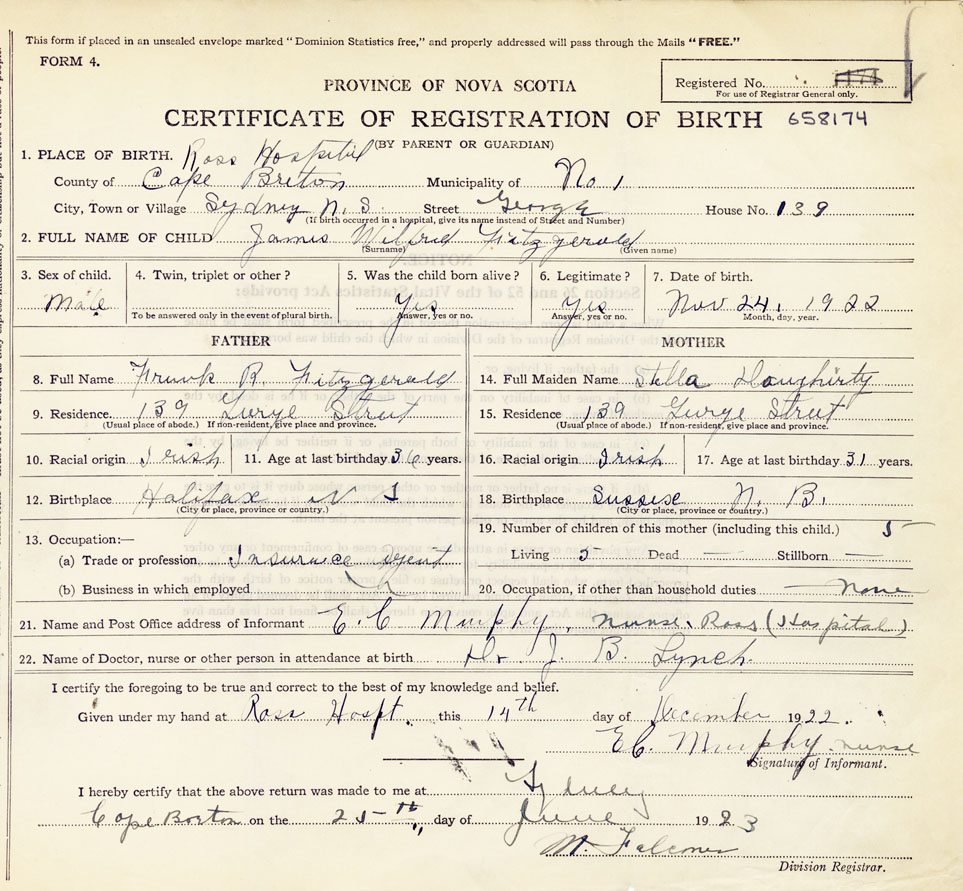 This form if placed in an unsealed envelope marked "Dominion Statistics free," and properly addressed will pass through the Mails "FREE."
FORM 4.
Registered No.
For use of Registrar General only.
PROVINCE OF NOVA SCOTIA
CERTIFICATE OF REGISTRATION OF BIRTH 658174
(BY PARENT OR GUARDIAN)
1. PLACE OF BIRTH. Ross Hospital
County of Cape Breton Municipality of No 1
City, Town or Village Sydney N. S. Street George House No. 139
(If birth occurred in a hospital, give its name instead of Street and Number)
2. FULL NAME OF CHILD James Wilfrid Fitzgerald
(Surname) (Given name)
3. Sex of child. 4. Twin, triplet or other? 5. Was the child born alive? 6. Legitimate? 7. Date of birth.
Male Yes Yes Nov 24, 1922
To be answered only in the event of plural birth. Answer, yes or no. Answer, yes or no. Month, day, year.
FATHER MOTHER
8. Full Name Frank R. Fitzgerald 14. Full Maiden Name Stella Doughirty
9. Residence. 139 Gurge Street 15. Residence 139 Gurge Street
(Usual place of abode.) If non-resident, give place and province. (Usual place of abode.) If non-resident, give place and province.
10. Racial origin Irish 11. Age at last birthday 36 years. 16. Racial origin Irish 17. Age at last birthday 31 years.
12. Birthplace Halifax N S 18. Birthplace Sussex N. B.
(City or place, province or country.) (City or place, province or country.)
19. Number of children of this mother (including this child.) 5
13. Occupation:—
(a) Trade or profession Insurance Agent Living 5 Dead — Stillborn —
(b) Business in which employed 20. Occupation, if other than household duties None
21. Name and Post Office address of Informant E. C. Murphy, nurse. Ross (Hospital)
22. Name of Doctor, nurse or other person in attendance at birth Dr J. B. Lynch.
I certify the foregoing to be true and correct to the best of my knowledge and belief.
Given under my hand at Ross Hospt. this 14th day of December 1922.
E.C. Murphy. nurse
Signature of Informant.
I hereby certify that the above return was made to me at Sydney
Cape Breton on the 25th day of June 1923
M. Falconer
Division Registrar.